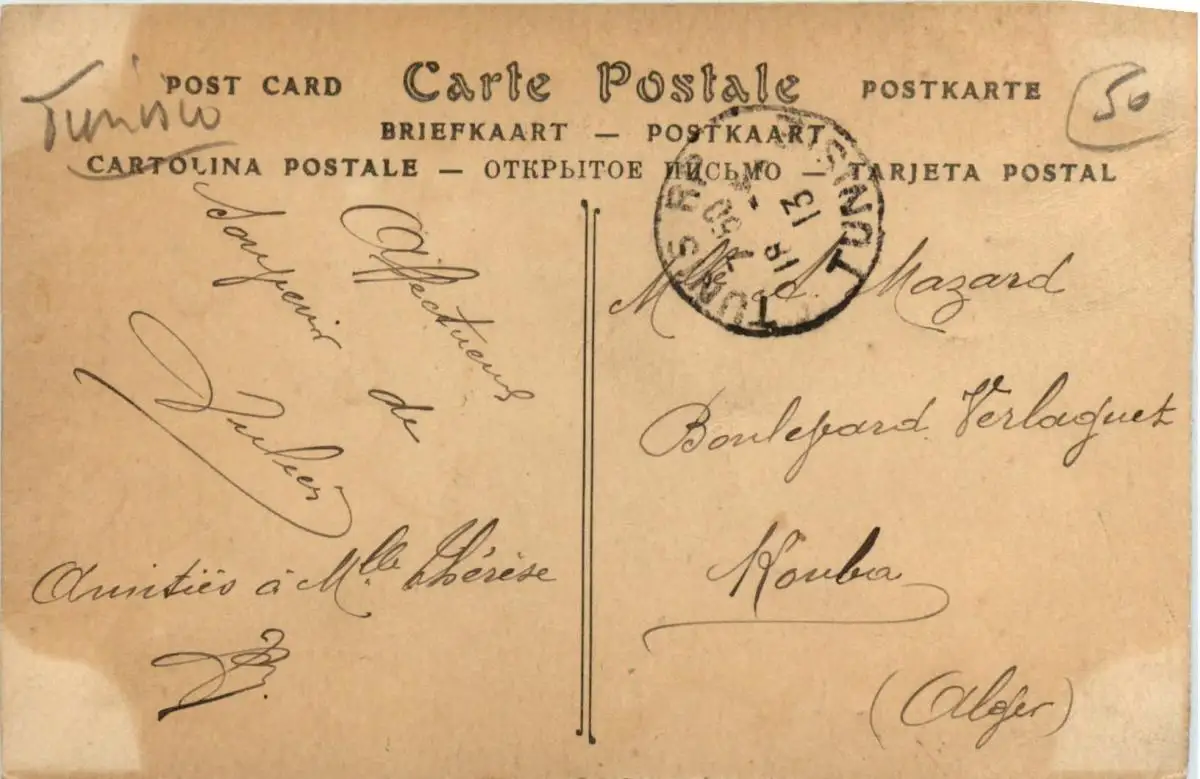 Tunisie
50
POST CARD Carte Postale POSTKARTE
BRIEFKAART — POSTKAART
CARTOLINA POSTALE — ОТКРЫТОЕ ПИСЬМО — TARJETA POSTAL
TUNIS R.P. TUNISIE
13
Affectueux
Souvenir
de
Julien
Amitiés à Mlle Thérèse
Mazard
Boulevard Verlaguet
Kouba
(Alger)